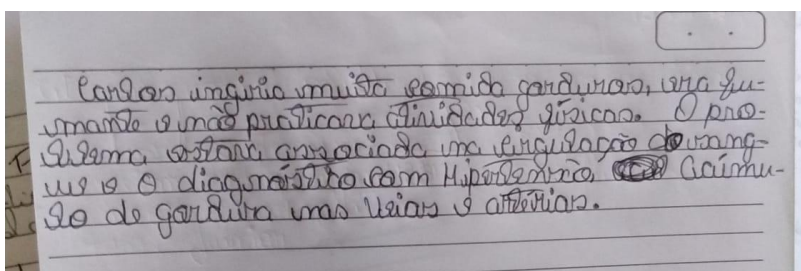 Carlos ingiria muita comida gordurao, era fu-
mante e não praticava atividades fisicas. O pro-
blema estava associada na cirgulação do sang-
ue e o diagnóistico com Hipertensão, Acúmu-
lo de gordura nas Veias e artérias.